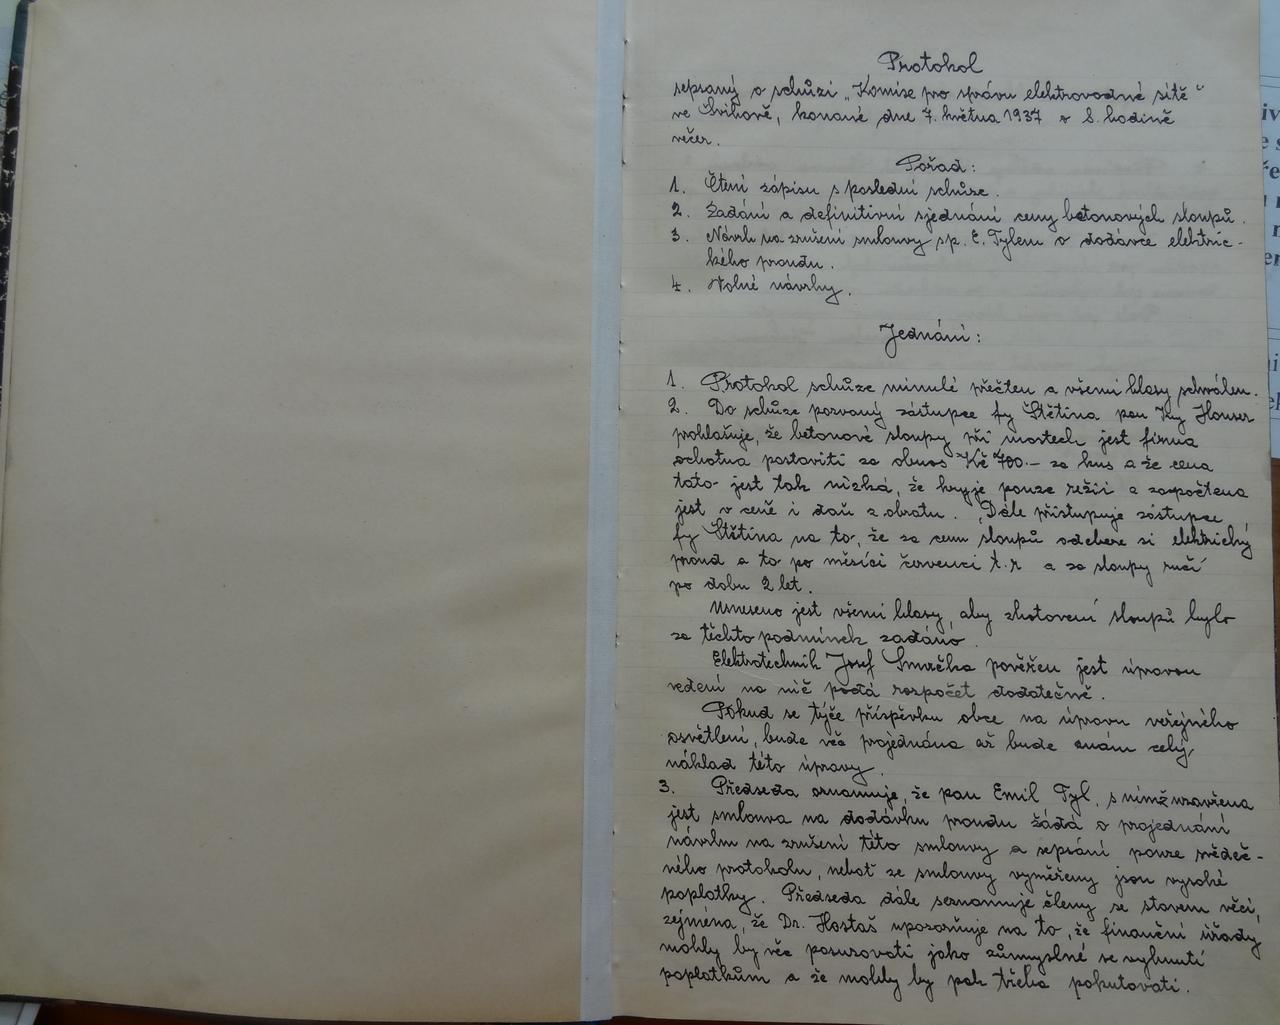 Protokol
sepsaný o schůzi „Komise pro správu elektrovodné sítě“
ve Švihově, konané dne 7. května 1937 o 8. hodině
večer.
Pořad:
1. Čtení zápisu s poslední schůze.
2. Zadání a definitivní sjednání ceny betonových sloupů.
3. Návrh na zrušení smlouvy s p. E. Tylem o dodávce elektric-
kého proudu.
4. Volné návrhy.
Jednání:
1. Protokol schůze minulé přečten a všemi hlasy schválen.
2. Do schůze pozvaný zástupce fy Štětina pan Ing Houser
prohlašuje, že betonové sloupy při mostech jest firma
ochotna postaviti za obnos Kč 700.- za kus a že cena
tato jest tak nízká, že kryje pouze režii a započtena
jest v ceně i daň z obratu. Dále přistupuje zástupce
fy Štětina na to, že za cenu sloupů odebere si elektrický
proud a to po měsíci červenci t.r a za sloupy ručí
po dobu 2 let.
Usneseno jest všemi hlasy, aby zhotovení sloupů bylo
za těchto podmínek zadáno.
Elektrotechnik Josef Smrčka pověřen jest úpravou
vedení na něž podá rozpočet dodatečně.
Pokud se týče příspěvku obce na úpravu veřejného
osvětlení, bude věc projednána až bude znám celý
náklad této úpravy.
3. Předseda oznamuje, že pan Emil Tyl, s nímž uzavřena
jest smlouva na dodávku proudu žádá o projednání
návrhu na zrušení této smlouvy a sepsání pouze svědeč-
ného protokolu, neboť ze smlouvy vyměřeny jsou vysoké
poplatky. Předseda dále seznamuje členy se stavem věci,
zejména, že Dr. Hostaš upozorňuje na to, že finanční úřady
mohly by věc posuzovati jako zúmyslné se vyhnutí
poplatkům a že mohly by pak třeba pokutovati.